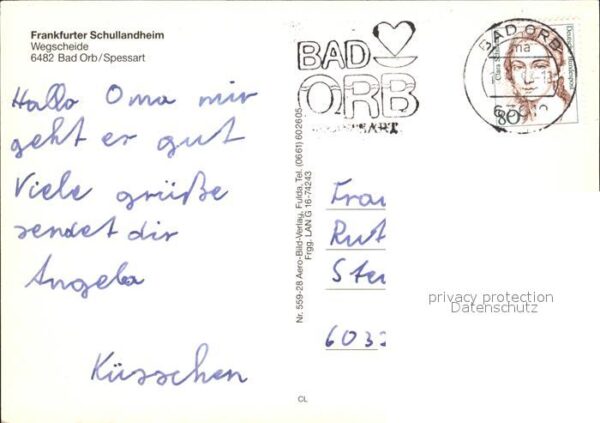 Frankfurter Schullandheim
Wegscheide
6482 Bad Orb/Spessart
Hallo Oma mir
geht er gut
Viele grüße
sendet dir
Angela
Küsschen
Nr. 559-28 Aero-Bild-Verlag, Fulda, Tel. (0661) 602605
Frgg. LAN G 16-74243
CL
BAD
ORB
BAD ORB
ma
Clara
Deutsche Bundespost
80
Frau
Rut
Ste
603
privacy protection
Datenschutz